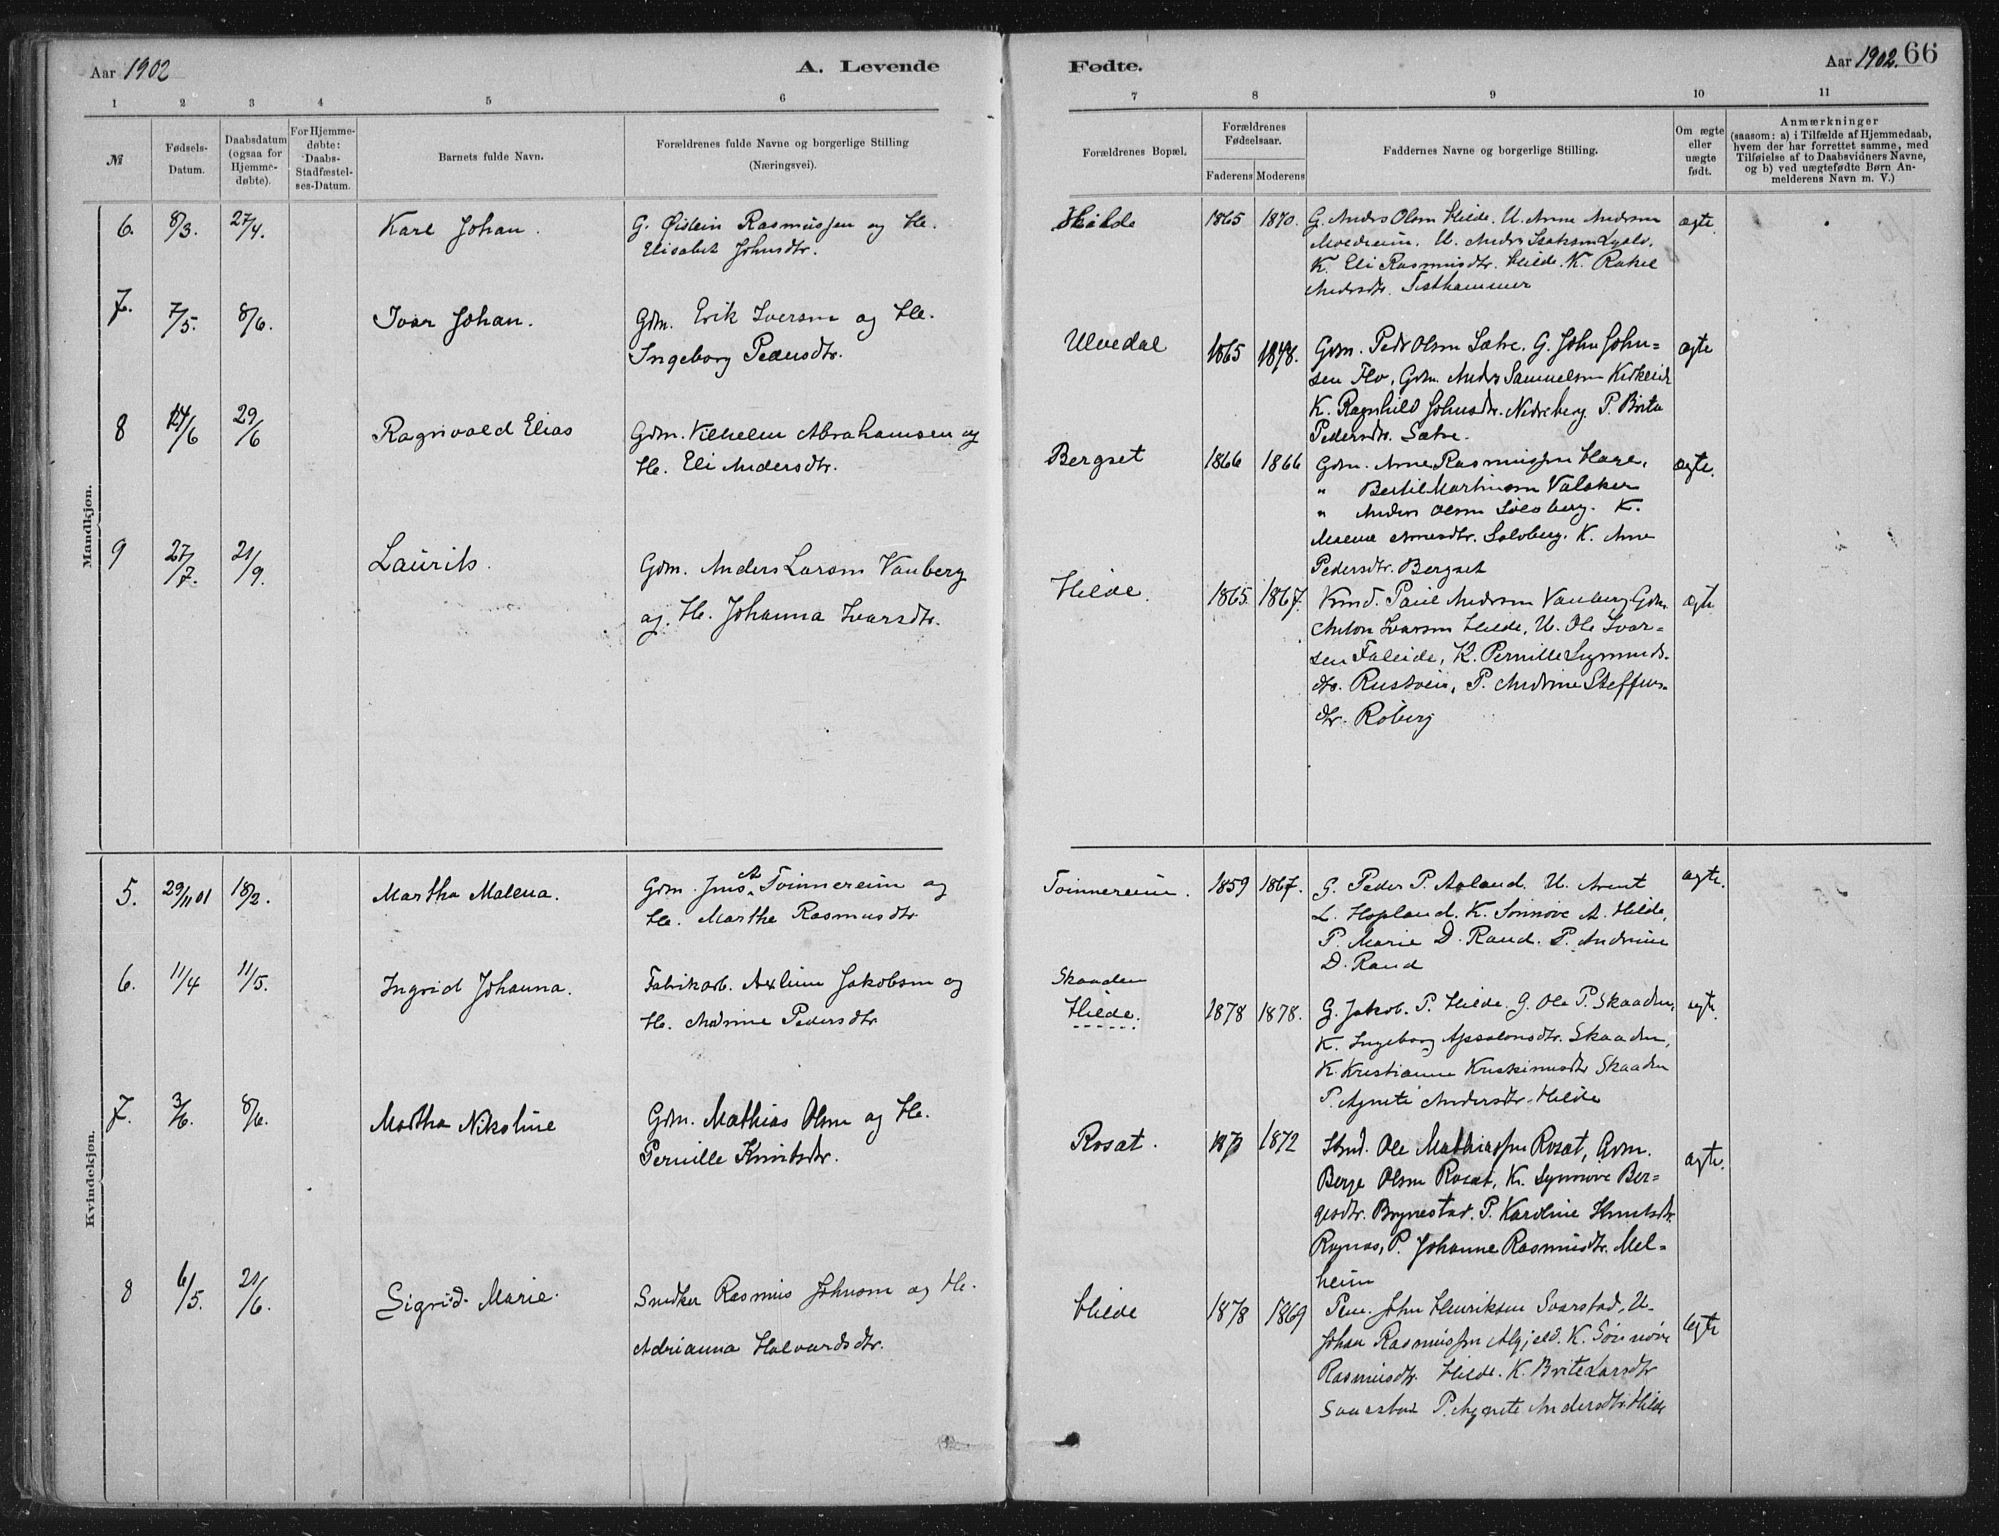 Aar 1902
A. Levende
Fødte.
Aar 1902. 66
1 2 3 4 5 6 7 8 9 10 11
№
Fødsels-
Datum.
Daabsdatum
(ogsaa for
Hjemme-
døbte).
For Hjemme-
døbte:
Daabs-
Stadfæstel-
ses-Datum.
Barnets fulde Navn.
Forældrenes fulde Navne og borgerlige Stilling
(Næringsvei).
Forældrenes Bopæl.
Forældrenes
Fødselsaar.
Faderens Moderens
Faddernes Navne og borgerlige Stilling.
Om ægte
eller
uægte
født.
Anmærkninger
(saasom: a) i Tilfælde af Hjemmedaab,
hvem der har forrettet samme, med
Tilføielse af to Daabsvidners Navne,
og b) ved uægtefødte Børn An-
melderens Navn m. V.)
Mandkjøn.
6. 8/3. 27/4. Karl Johan.
G. Øistein Rasmussen og He.
Elisabet Johnsdtr.
Hilde 1865 1870.
G. Anders Olsen Hilde. U. Anne Andersen
U. Anders Isaksen
K. Eli Rasmusdtr. Hilde. K. Rakel
Andersdtr. Tisthammer
ægte.
7. 7/5. 8/6. Ivar Johan.
Gdm. Erik Iversen og He.
Ingeborg Pedersdtr.
Ulvedal 1865 1878.
Gdm. Peder Olsen Sætre. G. John John-
sen Flo, Gdm. Anders Samuelsen
K. Ragnhild Johnsdtr. Nedreberg. P. Brita
Pedersdtr. Sætre.
ægte
8 14/6 29/6 Ragnvald Elias
Gdm. Vilhelm Abrahamsen og
He. Eli Andersdtr.
Bergset 1866 1866
Gdm. Arne Rasmussen Hage,
" Bertil Martinsen Valaker
" Anders Olsen Solvberg. K.
Malena Arnesdtr. Solvberg. K. Ane
Pedersdtr. Bergset
ægte.
9 27/7. 21/9. Laurits.
Gdm. Anders Larsen Vanberg
og. He. Johanna Ivarsdtr.
Hilde. 1865. 1867.
Paul Andersen Vanberg Gdm.
Anton Ivarsen Hilde, U. Ole Ivar-
sen Faleide, K. Pernille Sigmunds-
dtr. P. Andrine Steffens-
dtr. Roberg
ægte
Kvindekjøn.
5. 29/11 01 18/2. Martha Malena.
Gdm. Jens A. Tvinnereim og
He. Marthe Rasmusdtr
Tvinnereim. 1859 1867.
G. Peder P. Aaland. U. Arent
L. Hopland. K. Sønnøve A. Hilde,
P. Marie D. Rand. P. Andrine
D. Rand
ægte.
6. 11/4 11/5. Ingrid Johanna.
Fabrikarb. Axlein Jakobsen og
He. Andrine Pedersdtr
Skaaden
Hilde. 1878 1878.
G. Jakob. P. Hilde. G. Ole P. Skaaden,
K. Ingeborg Apsalonsdtr. Skaaden,
K. Kristianne Kristinusdtr Skaaden
P. Agnete Andersdtr. Hilde
ægte.
7. 3/6. 8/6. Martha Nikoline
Gdm. Mathias Olsen og He.
Pernille Knutsdtr.
Rosæt. 1872
Ole Mathiassen Rosæt, Gdm.
Berge Olsen Rosæt, K. Synnøve Ber-
gesdtr. Brynestad. P. Karoline Knutsdtr.
P. Johanne Rasmusdtr. Mel-
heim
ægte.
8 6/5. 21/6. Sigrid Marie.
Snedker Rasmus Johnsen og He.
Adrianna Halvardsdtr.
Hilde 1878 1869
John Henriksen Svarstad, U.
Johan Rasmussen K. Sønnøve
Rasmusdtr. Hilde. K. Brite Larsdtr
Svarstad P. Agnete Andersdtr. Hilde
ægte